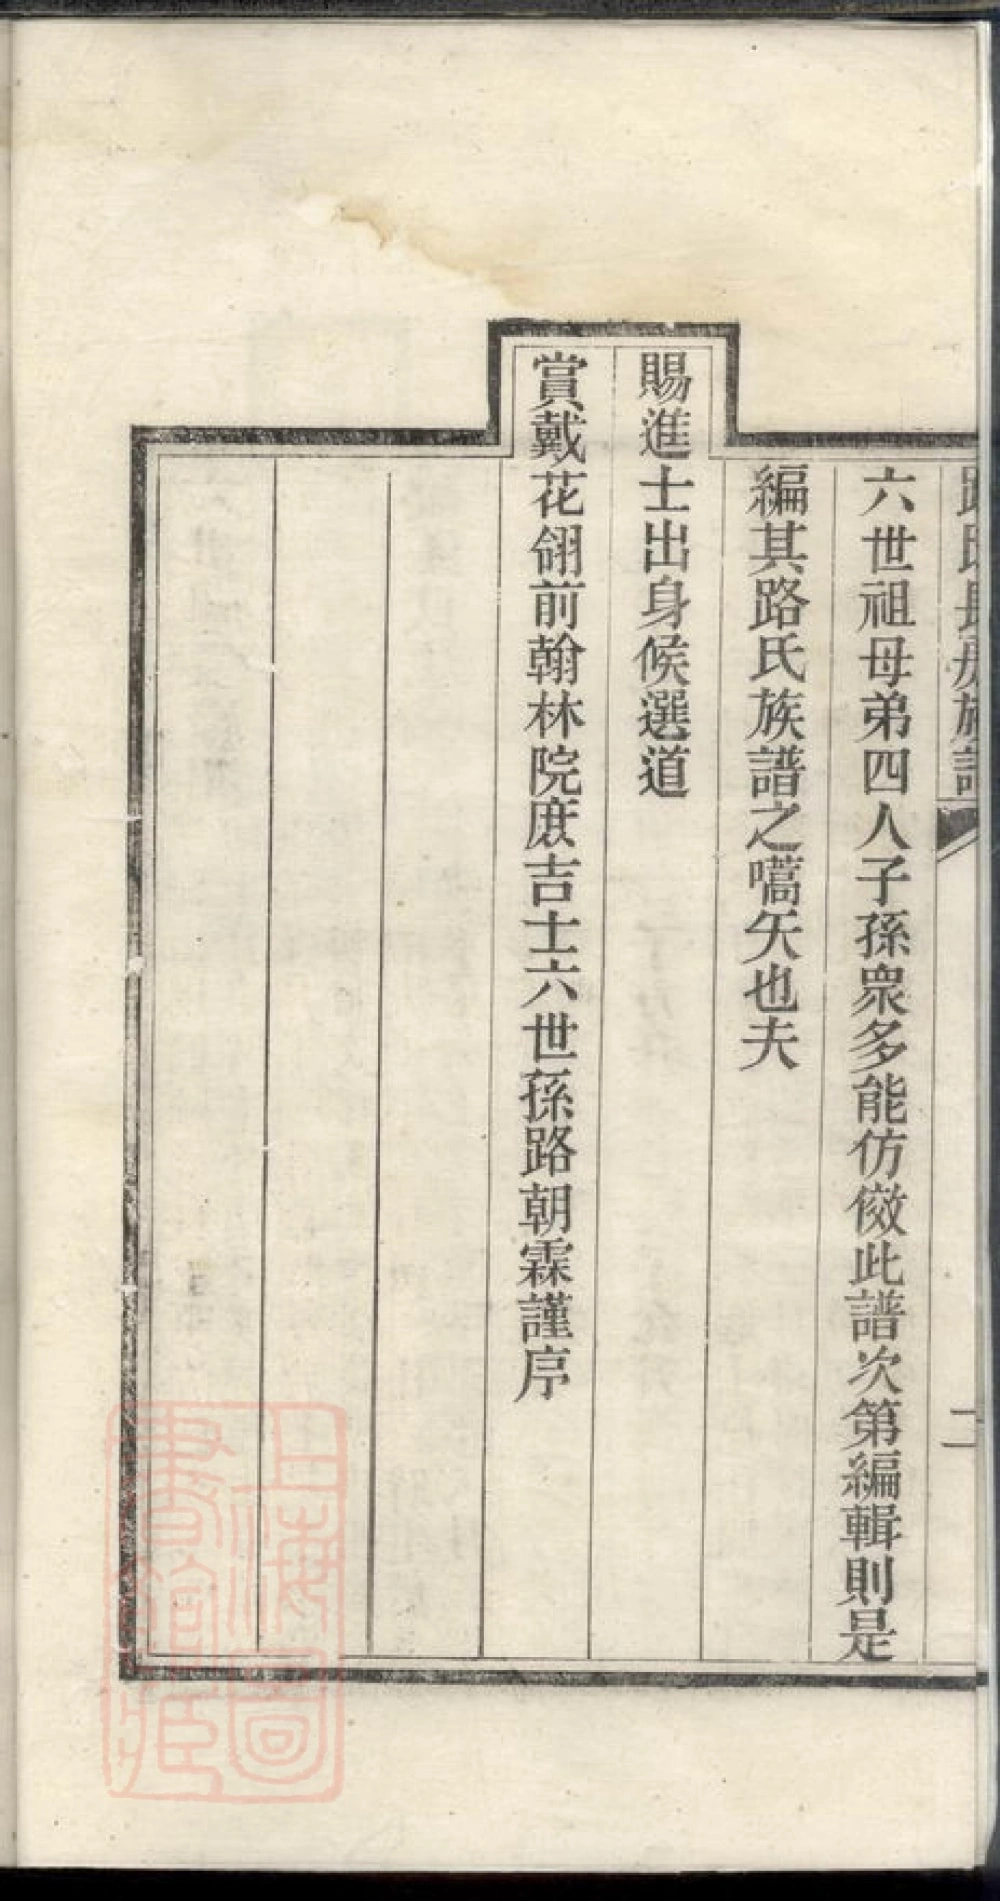 路氏長房族譜
二
六世祖母弟四人子孫衆多能仿傚此譜次第編輯則是
編其路氏族譜之嚆矢也夫
賜進士出身候選道
賞戴花翎前翰林院庶吉士六世孫路朝霖謹序
上海圖書館藏